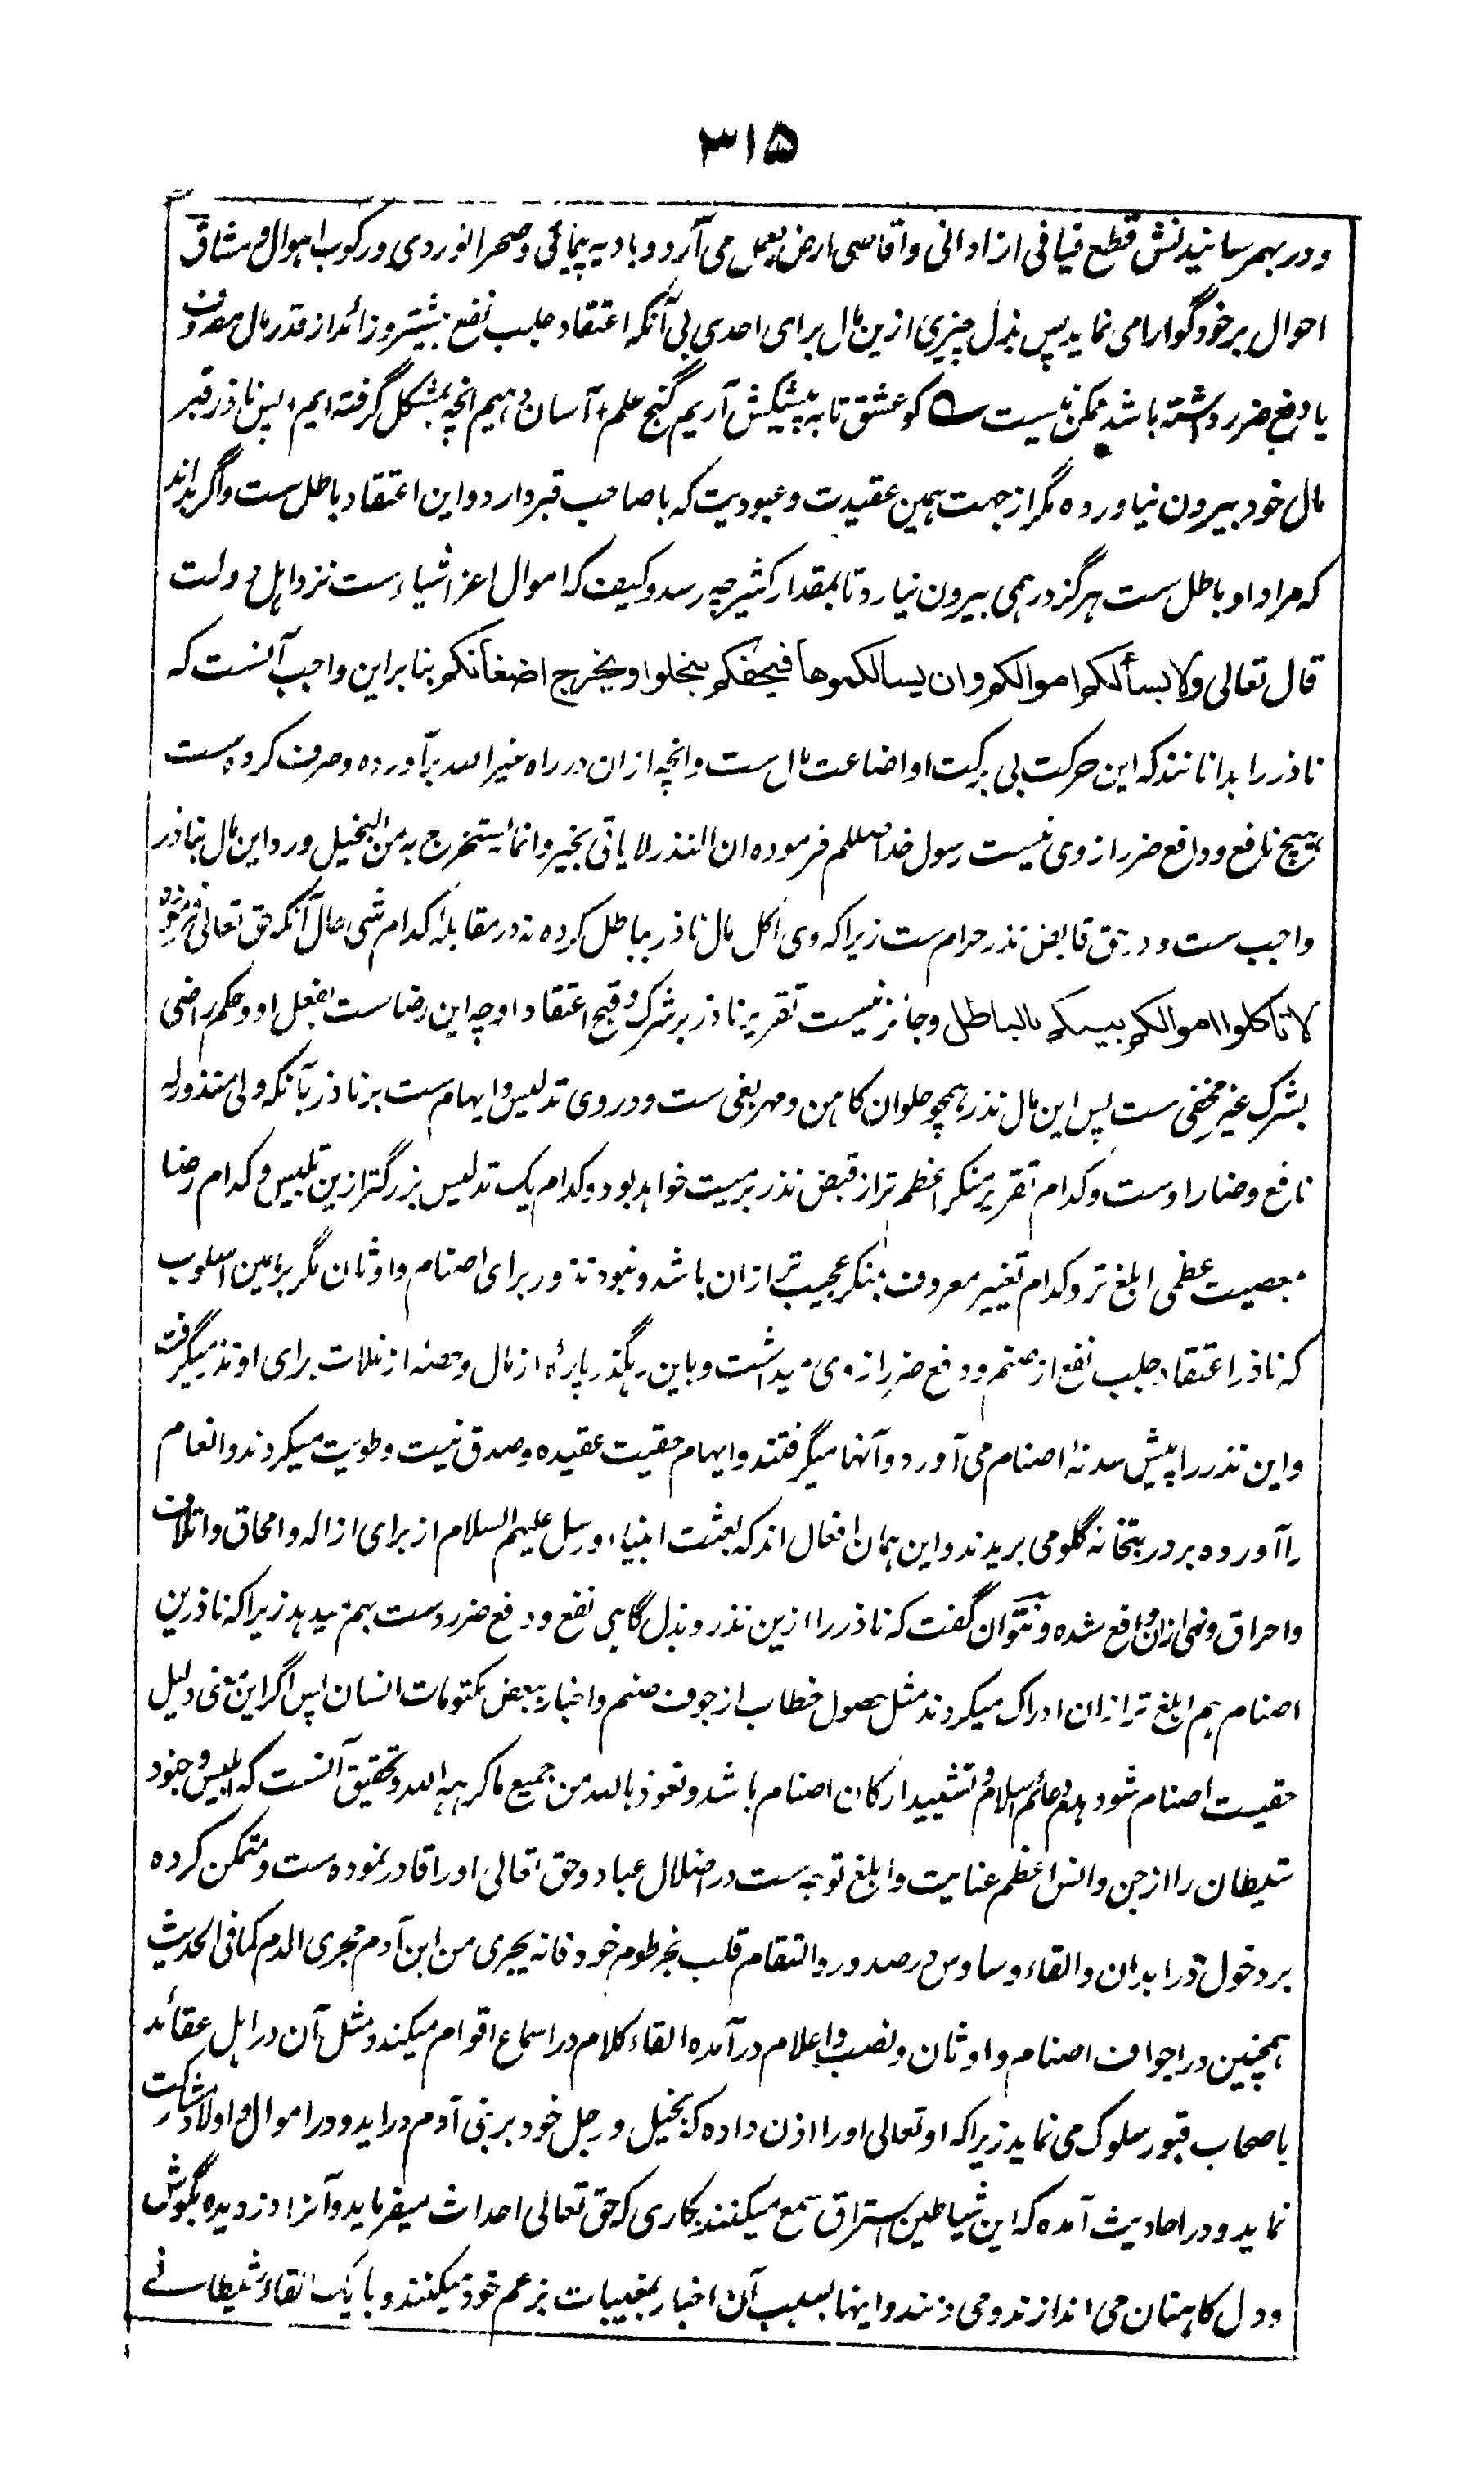 ۳۱۵
و در بهمرسانیدنش قطع فیافی از ادانی و اقاصی ارض بعمل می آرد و بادیه پیمائی و صحرا نوردی و رکوب اهوال و مشاق
احوال بر خود گوارا می نماید پس بذل چیزی ازین مال برای احدی بی آنکه اعتقاد جلب نفع بیشتر و زائد از قدر مال مصروف
یا دفع ضرر داشته باشد ممکن نیست ے کو عشق تا به پیشکش آریم گنج علم + آسان دهیم انچه بمشکل گرفته ایم + پس ناذر قبر
مال خود بیرون نیاورده مگر از جهت همین عقیدت و عبودیت که با صاحب قبر دارد و این اعتقاد باطل ست و اگر بداند
که مراد او باطل ست هرگز درهمی بیرون نیارد تا بمقدار کثیر چه رسد و کیف که اموال اعز اشیاء ست نزد اهل دولت
قال تعالی ولا یسألکم اموالکم وان یسألکموها فیحفکم تبخلوا ویخرج اضغانکم بنا برین واجب آنست که
ناذر را بدانانند که این حرکت بی برکت او اضاعت مال ست و انچه ازان در راه غیر الله برآورده و صرف کرده ست
هیچ نافع و دافع ضرر از وی نیست رسول خدا صللم فرموده ان النذر لا یاتی بخیر وانما یستخرج به من البخیل و رد این مال بناذر
واجب ست و در حق قابض نذر حرام ست زیرا که وی اکل مال ناذر بباطل کرده نه در مقابله کدام شی حال آنکه حق تعالی فرموده
لا تاکلوا اموالکم بینکم بالباطل و جائز نیست تقریر ناذر بر شرک و قبح اعتقاد او چه این رضا ست بفعل او و حکم راضی
بشرک غیر مخفی ست پس این مال نذر همچو حلوان کاهن و مهر بغی ست و در وی تدلیس و ایهام ست بر ناذر بآنکه ولی منذور له
نافع و ضار اوست و کدام تقریر منکر اعظم تر از قبض نذر بر میت خواهد بود و کدام یک تدلیس بزرگتر ازین تلبیس و کدام رضا
بمعصیت عظمی ابلغ تر و کدام تغییر معروف بمنکر عجیب تر ازان باشد و نبود نذور برای اصنام و اوثان مگر بر همین اسلوب
که ناذر اعتقاد جلب نفع از صنم و دفع ضرر از وی میداشت و باین رهگذر پارهٔ از مال و حصهٔ از غلات برای او نذر میگرفت
و این نذر را پیش سدنهٔ اصنام می آورد و آنها میگرفتند و ایهام حقیت عقیده و صدق نیت و طویت میکردند و انعام
را آورده بر در بتخانه گلو می بریدند و این همان افعال اند که بعثت انبیاء و رسل علیهم السلام از برای ازاله و امحاق و اتلاف
و احراق و نهی ازان واقع شده و نتوان گفت که ناذر را ازین نذر و بذل گاهی نفع و دفع ضرر دست بهم میدهد زیرا که ناذرین
اصنام هم ابلغ تر ازان ادراک میکردند مثل حصول خطاب از جوف صنم و اخبار ببعض مکتومات انسان پس اگر این معنی دلیل
حقیت اصنام شود هدم دعائم اسلام و تشیید ارکان اصنام باشد ونعوذ بالله من جمیع ما کرهه الله و تحقیق آنست که ابلیس و جنود
شیطان را از جن و انس اعظم عنایت و ابلغ توجه ست در اضلال عباد و حق تعالی او را قادر نموده ست و متمکن کرده
بر دخول در ابدان و القاء وساوس در صدور و التقام قلب بخرطوم خود فانه یجری من ابن آدم مجری الدم کما فی الحدیث
همچنین در اجواف اصنام و اوثان و نصب و اعلام درآمده القاء کلام در اسماع اقوام میکند و مثل آن در اهل عقائد
باصحاب قبور سلوک می نماید زیرا که او تعالی او را اذن داده که بخیل و رجل خود بر بنی آدم دراید و در اموال و اولاد مشارکت
نماید و در احادیث آمده که این شیاطین استراق سمع میکنند بکاری که حق تعالی احداث میفرماید و آنرا دزدیده بگوش
و دل کاهنان می اندازند و می زنند و اینها بسبب آن اخبار بمغیبات بزعم خود میکنند و با یک القاء شیطانے